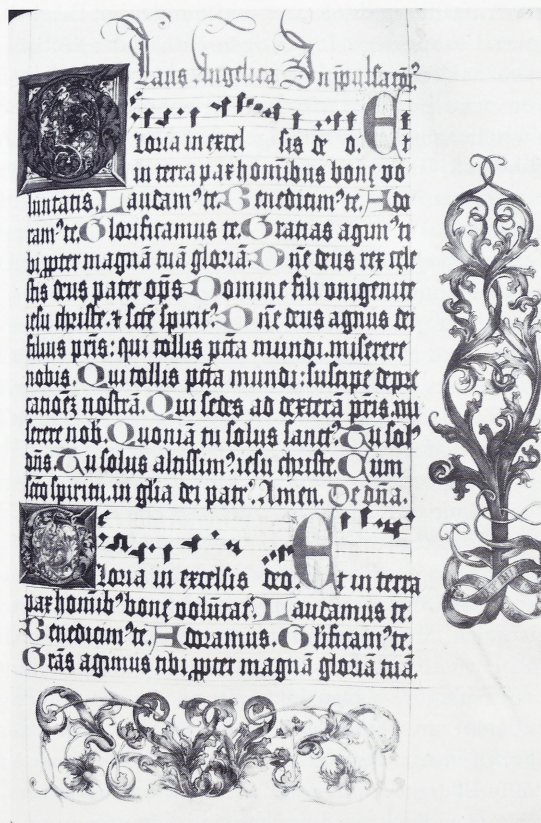 Laus Angelica In
Gloria in excelsis deo. Et
in terra pax homībus bonę vo
luntatis. Laudamꝰ te. Benedicimꝰ te. Ado
ramꝰ te. Glorificamus te. Gratias agimꝰ ti
bi ꝓpter magnā tuā gloriā. Dne deus rex cęle
stis deus pater ops Domine fili unigenite
iesu christe. ⁊ scte spiritꝰ. Dne deus agnus dei
filius pris: qui tollis pcta mundi. miserere
nobis. Qui tollis pcta mundi: suscipe depre
catioēꝫ nostrā. Qui sedes ad dexterā pris. mi
serere nob. Quoniā tu solus sanctꝰ. Tu solꝰ
dns. Tu solus altissimꝰ. iesu christe. Cum
scto spiritu. in glia dei patrꝭ. Amen. De dna.
Gloria in excelsis deo. Et in terra
pax homībꝰ bonę volūtatꝭ. Laudamus te.
Benedicimꝰ te. Adoramus. Glificamꝰ te.
Gras agimus tibi. ꝓpter magnā gloriā tuā.